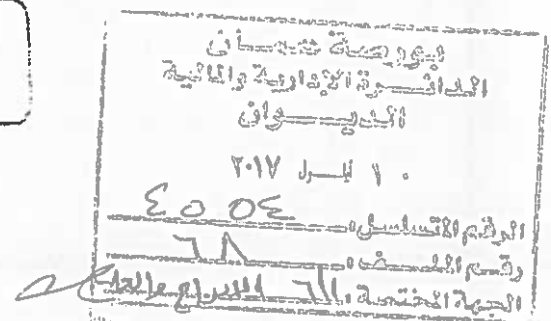 بورصة عمان
الدائرة الإدارية والمالية
الديوان
١٠ أيلول ٢٠١٧
الرقم المتسلسل: ٤٥٥٤
رقم الملف:
الجهة المختصة: الإدراج